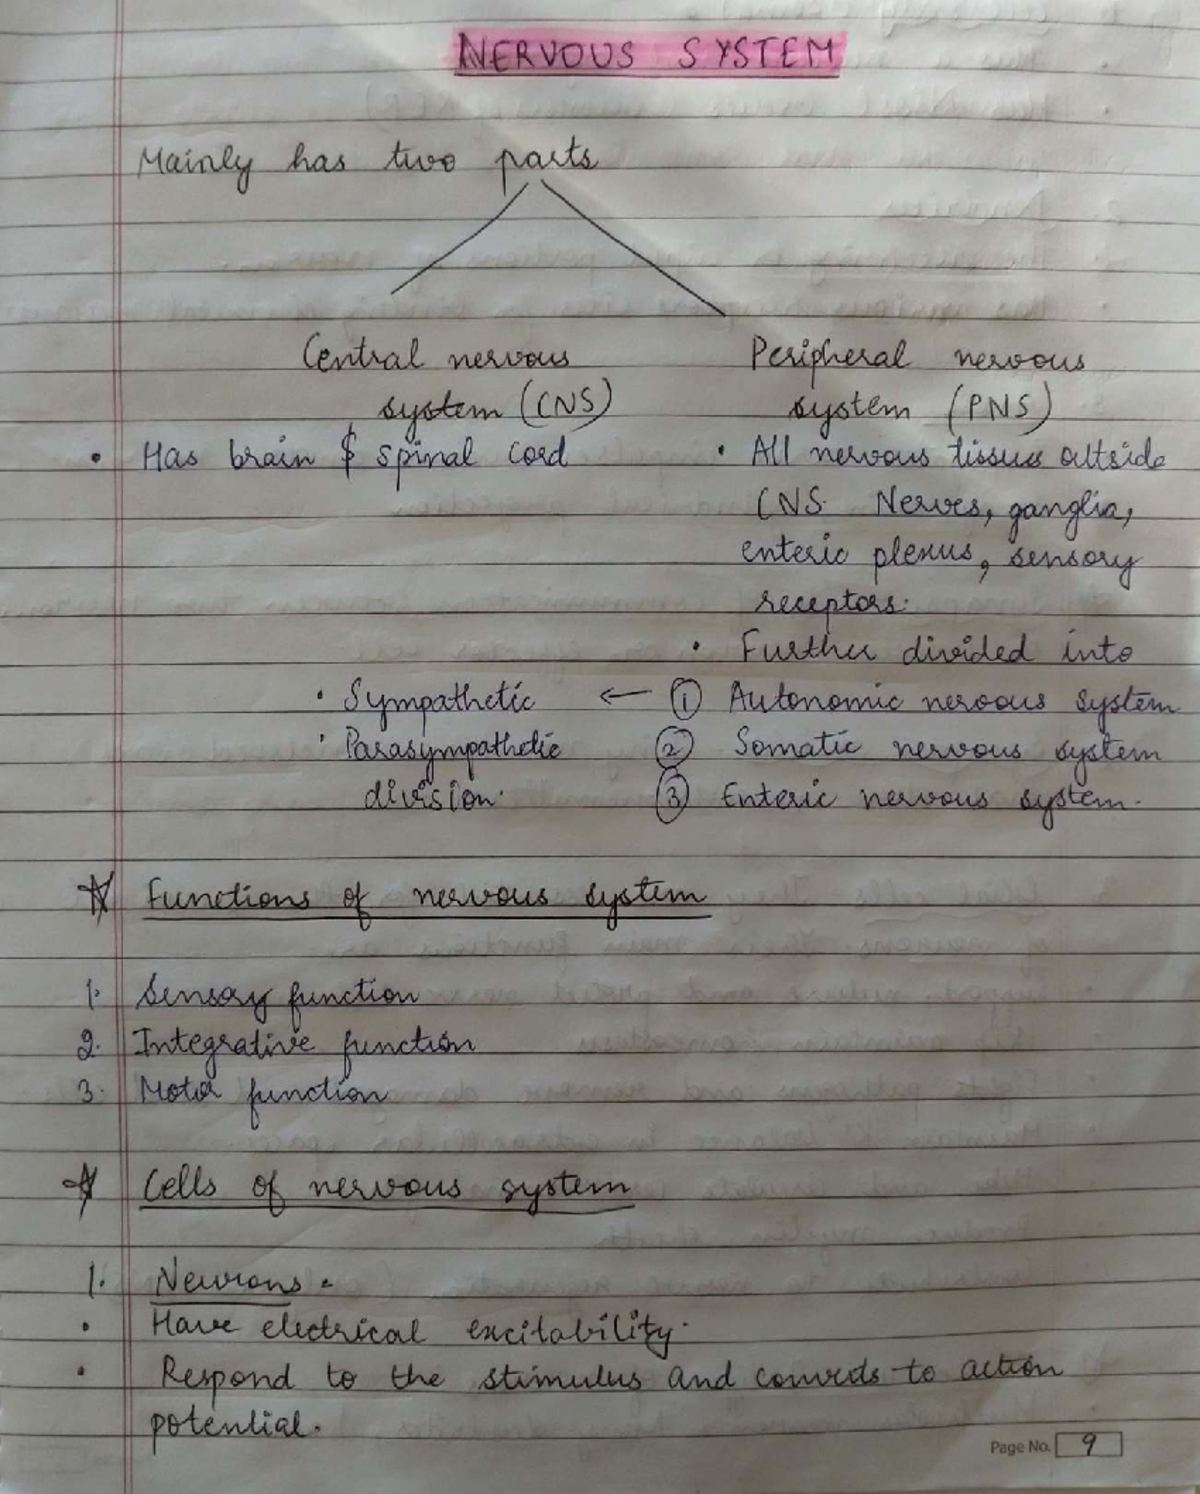 NERVOUS SYSTEM
Mainly has two parts
Central nervous
system (CNS)
• Has brain & spinal cord
Peripheral nervous
system (PNS)
• All nervous tissues outside
CNS. Nerves, ganglia,
enteric plexus, sensory
receptors.
• Further divided into
① Autonomic nervous system
② Somatic nervous system
③ Enteric nervous system.
←
• Sympathetic
• Parasympathetic
division.
☆ Functions of nervous system
1. Sensory function
2. Integrative function
3. Motor function
☆ Cells of nervous system
1. Neurons -
• Have electrical excitability.
• Respond to the stimulus and converts to action
potential.
Page No. 9